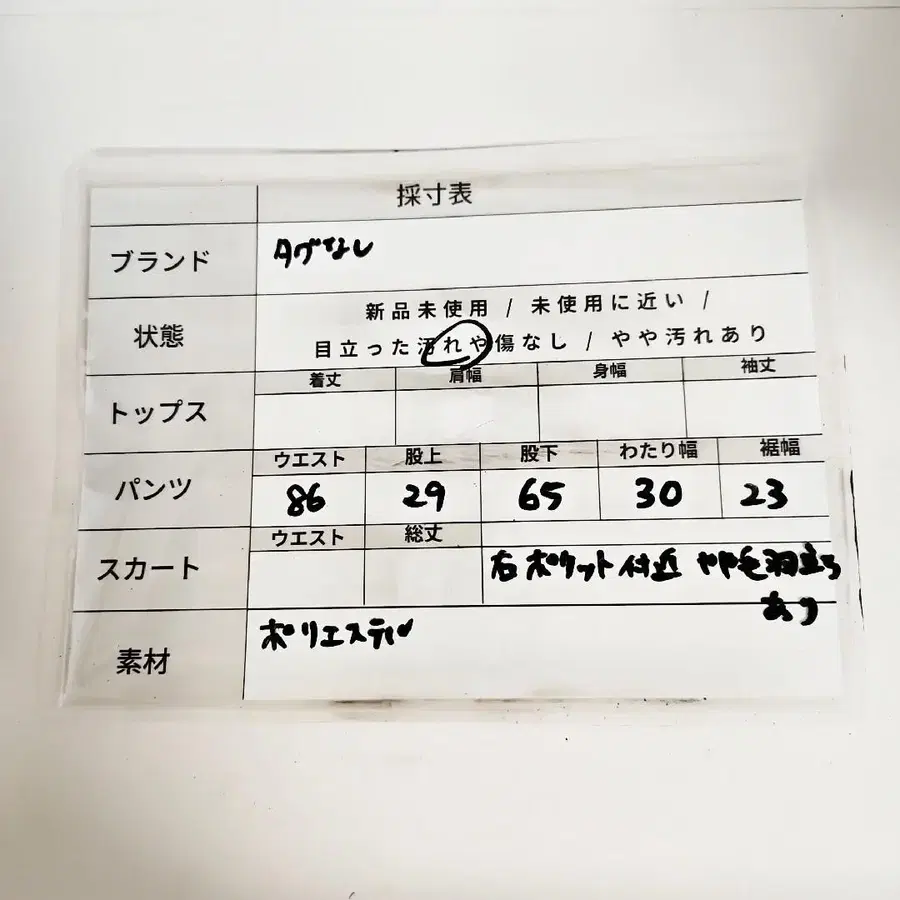 採寸表
ブランド タグなし
状態 新品未使用 / 未使用に近い /
目立った汚れや傷なし / やや汚れあり
トップス 着丈 肩幅 身幅 袖丈
パンツ ウエスト 股上 股下 わたり幅 裾幅
86 29 65 30 23
スカート ウエスト 総丈
右ポケット付近 やや毛羽立ち
あり
素材 ポリエステル